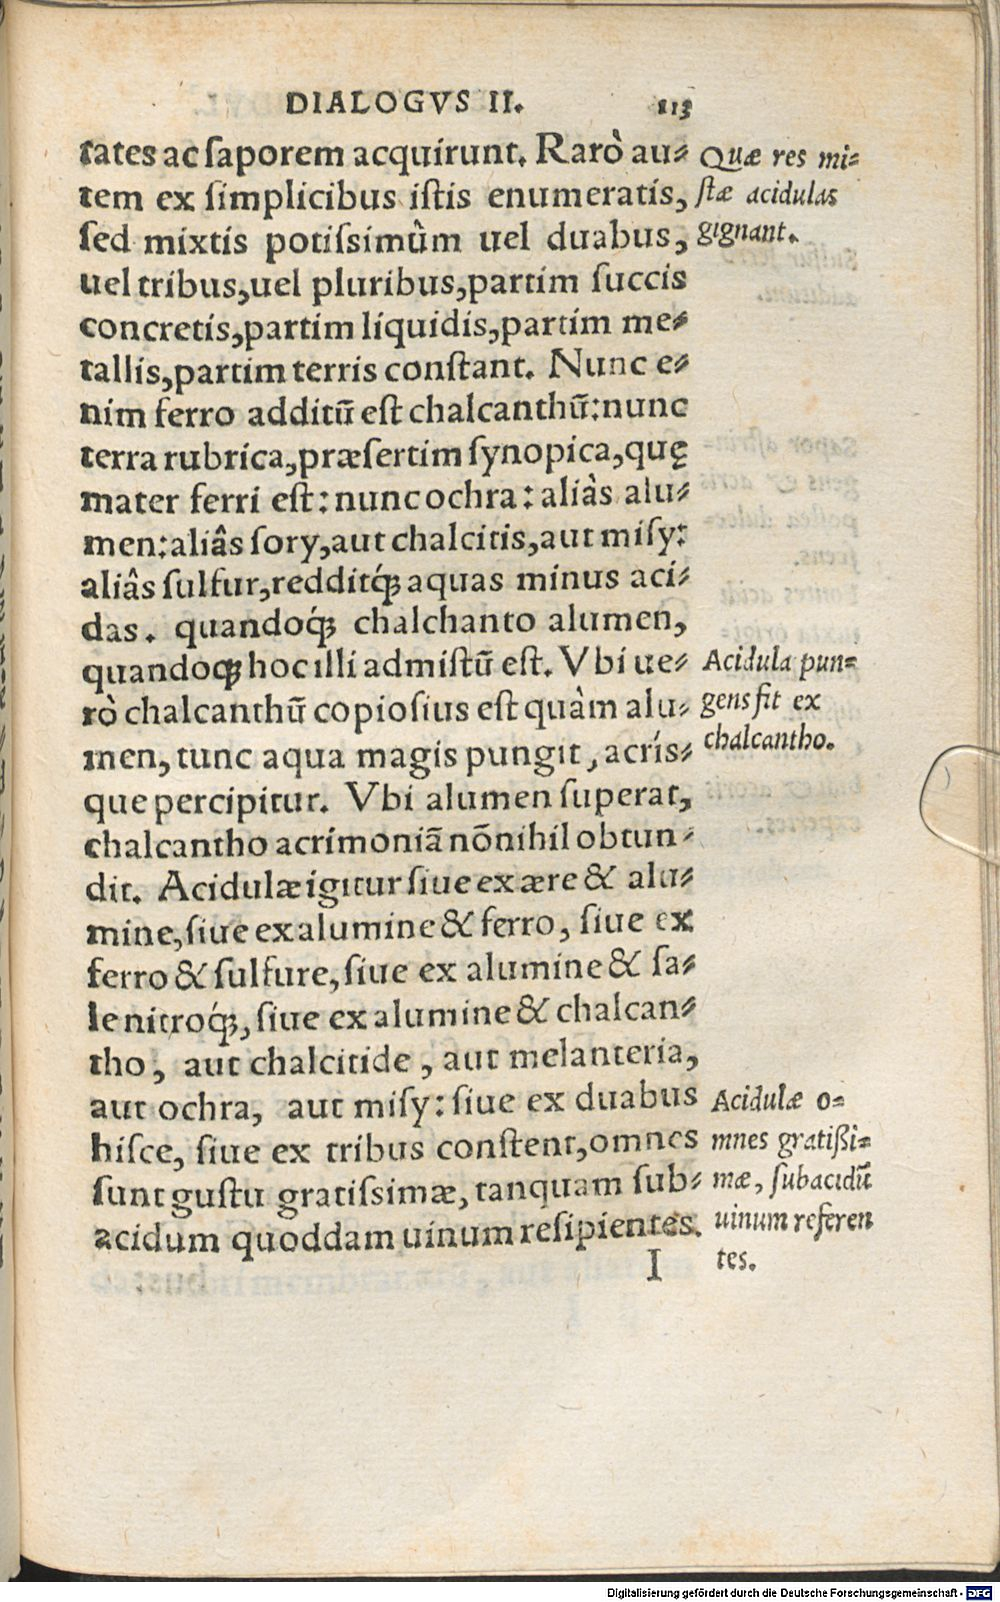 DIALOGVS II. 113
tates ac ſaporem acquirunt. Rarò au⸗
tem ex ſimplicibus iſtis enumeratis,
ſed mixtis potiſsimùm uel duabus,
uel tribus, uel pluribus, partim ſuccis
concretis, partim liquidis, partim me⸗
tallis, partim terris conſtant. Nunc e⸗
nim ferro additū eſt chalcanthū: nunc
terra rubrica, præſertim ſynopica, quę
mater ferri eſt: nunc ochra: aliàs alu⸗
men: aliâs ſory, aut chalcitis, aut miſy:
aliâs ſulfur, redditq́; aquas minus aci⸗
das. quandoq́; chalchanto alumen,
quandoq; hoc illi admiſtū eſt. Vbi ue⸗
rò chalcanthū copioſius eſt quàm alu⸗
men, tunc aqua magis pungit, acris⸗
que percipitur. Vbi alumen ſuperat,
chalcantho acrimoniā nōnihil obtun⸗
dit. Acidulæ igitur ſiue ex ære & alu⸗
mine, ſiue ex alumine & ferro, ſiue ex
ferro & ſulfure, ſiue ex alumine & ſa⸗
le nitroq́;, ſiue ex alumine & chalcan⸗
tho, aut chalcitide, aut melanteria,
aut ochra, aut miſy: ſiue ex duabus
hiſce, ſiue ex tribus conſtent, omnes
ſunt guſtu gratiſsimæ, tanquam ſub⸗
acidum quoddam uinum reſipientes.
I
Quæ res mi⸗
ſtæ acidulas
gignant.
Acidula pun⸗
gens fit ex
chalcantho.
Acidulæ o⸗
mnes gratißi⸗
mæ, ſubacidū
uinum referen
tes.
Digitalisierung gefördert durch die Deutsche Forschungsgemeinschaft - DFG